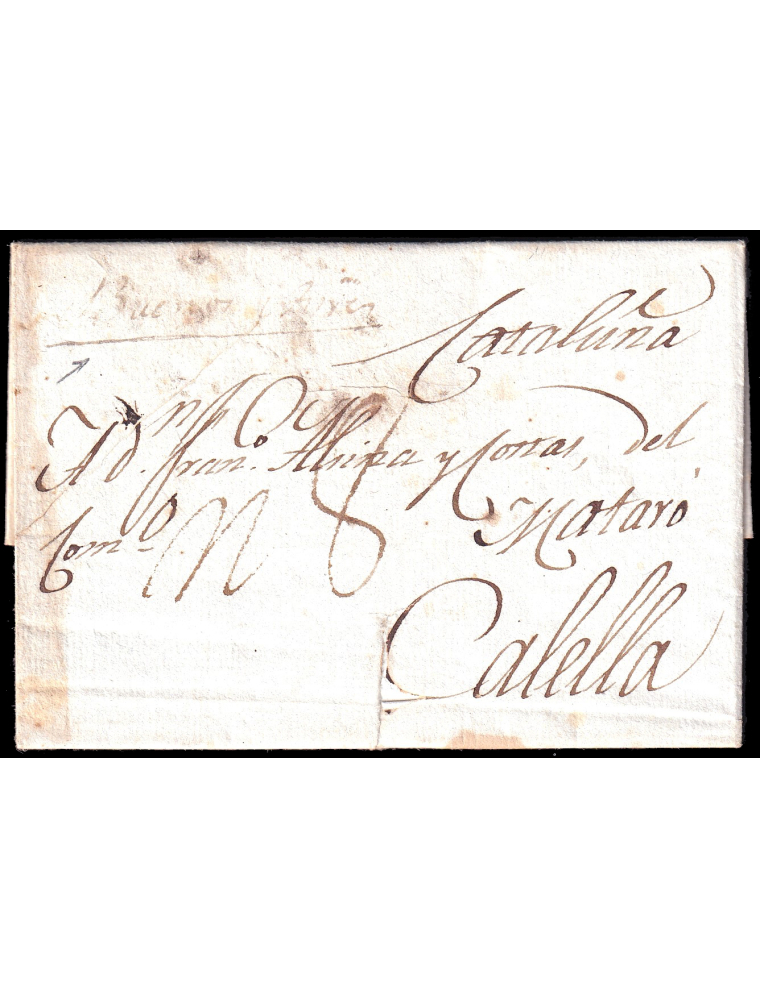 Buenos Ayres
Cataluña
A d. Fran.º Alsina y Corras, del
Com.º Mataró
8
Calella